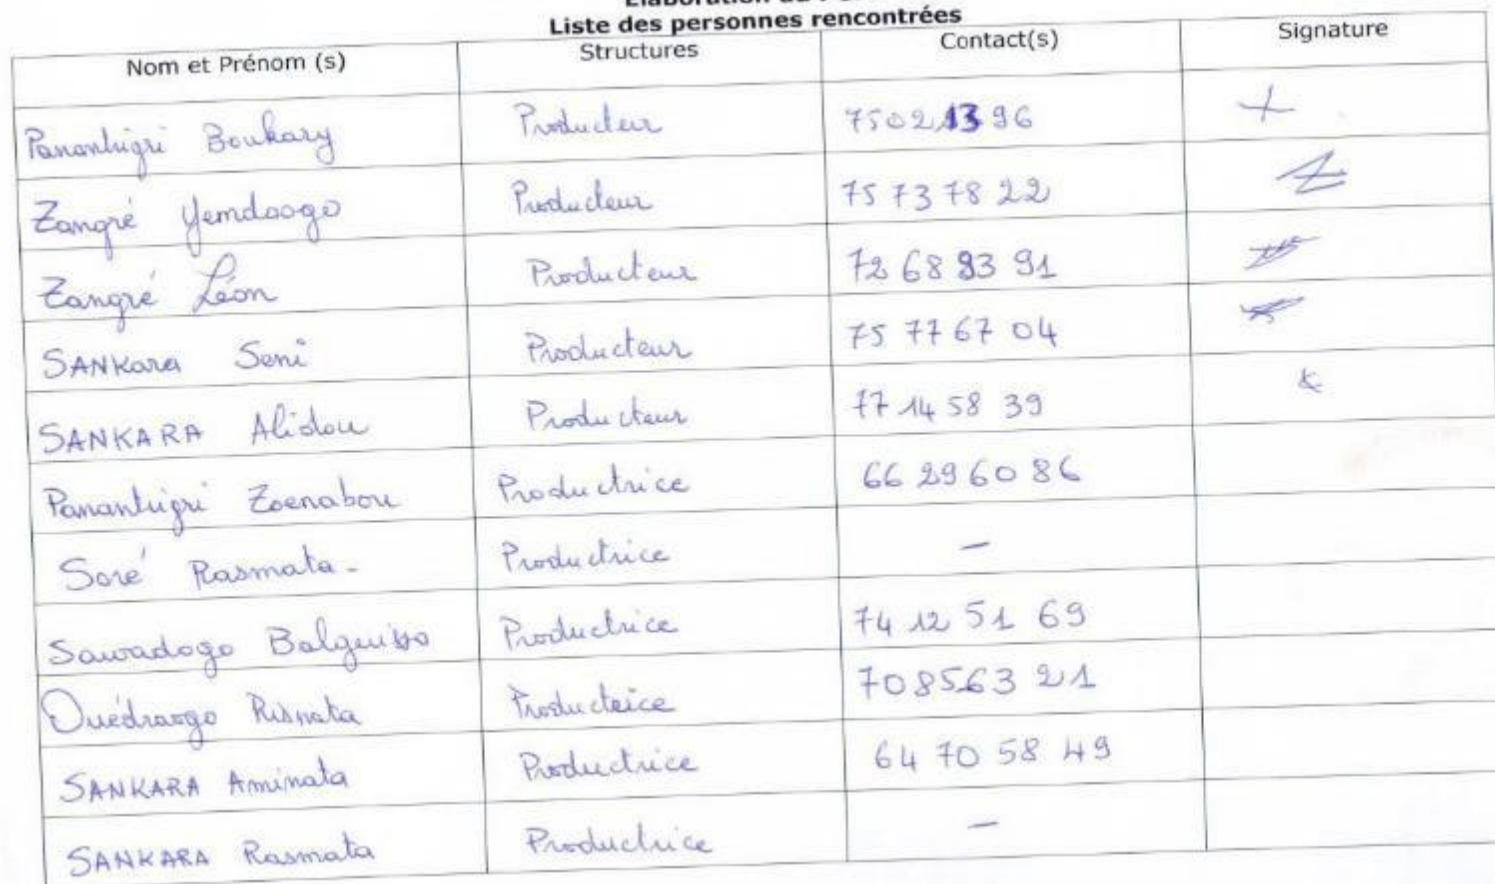 Liste des personnes rencontrées
Nom et Prénom (s) Structures Contact(s) Signature
Pananhigri Boukary Producteur 750213 96
Zangré Yemdaogo Producteur 75 73 78 22
Zangré Léon Producteur 72 68 93 91
SANKara Seni Producteur 75 77 67 04
SANKARA Alidou Producteur 77 14 58 39
Pananhigri Zoenabou Productrice 66 296086
Soré Rasmata - Productrice -
Sawadogo Balguisso Productrice 74 12 51 69
Ouédraogo Risnata Productrice 708563 21
SANKARA Aminata Productrice 64 70 58 49
SANKARA Rasmata Productrice -